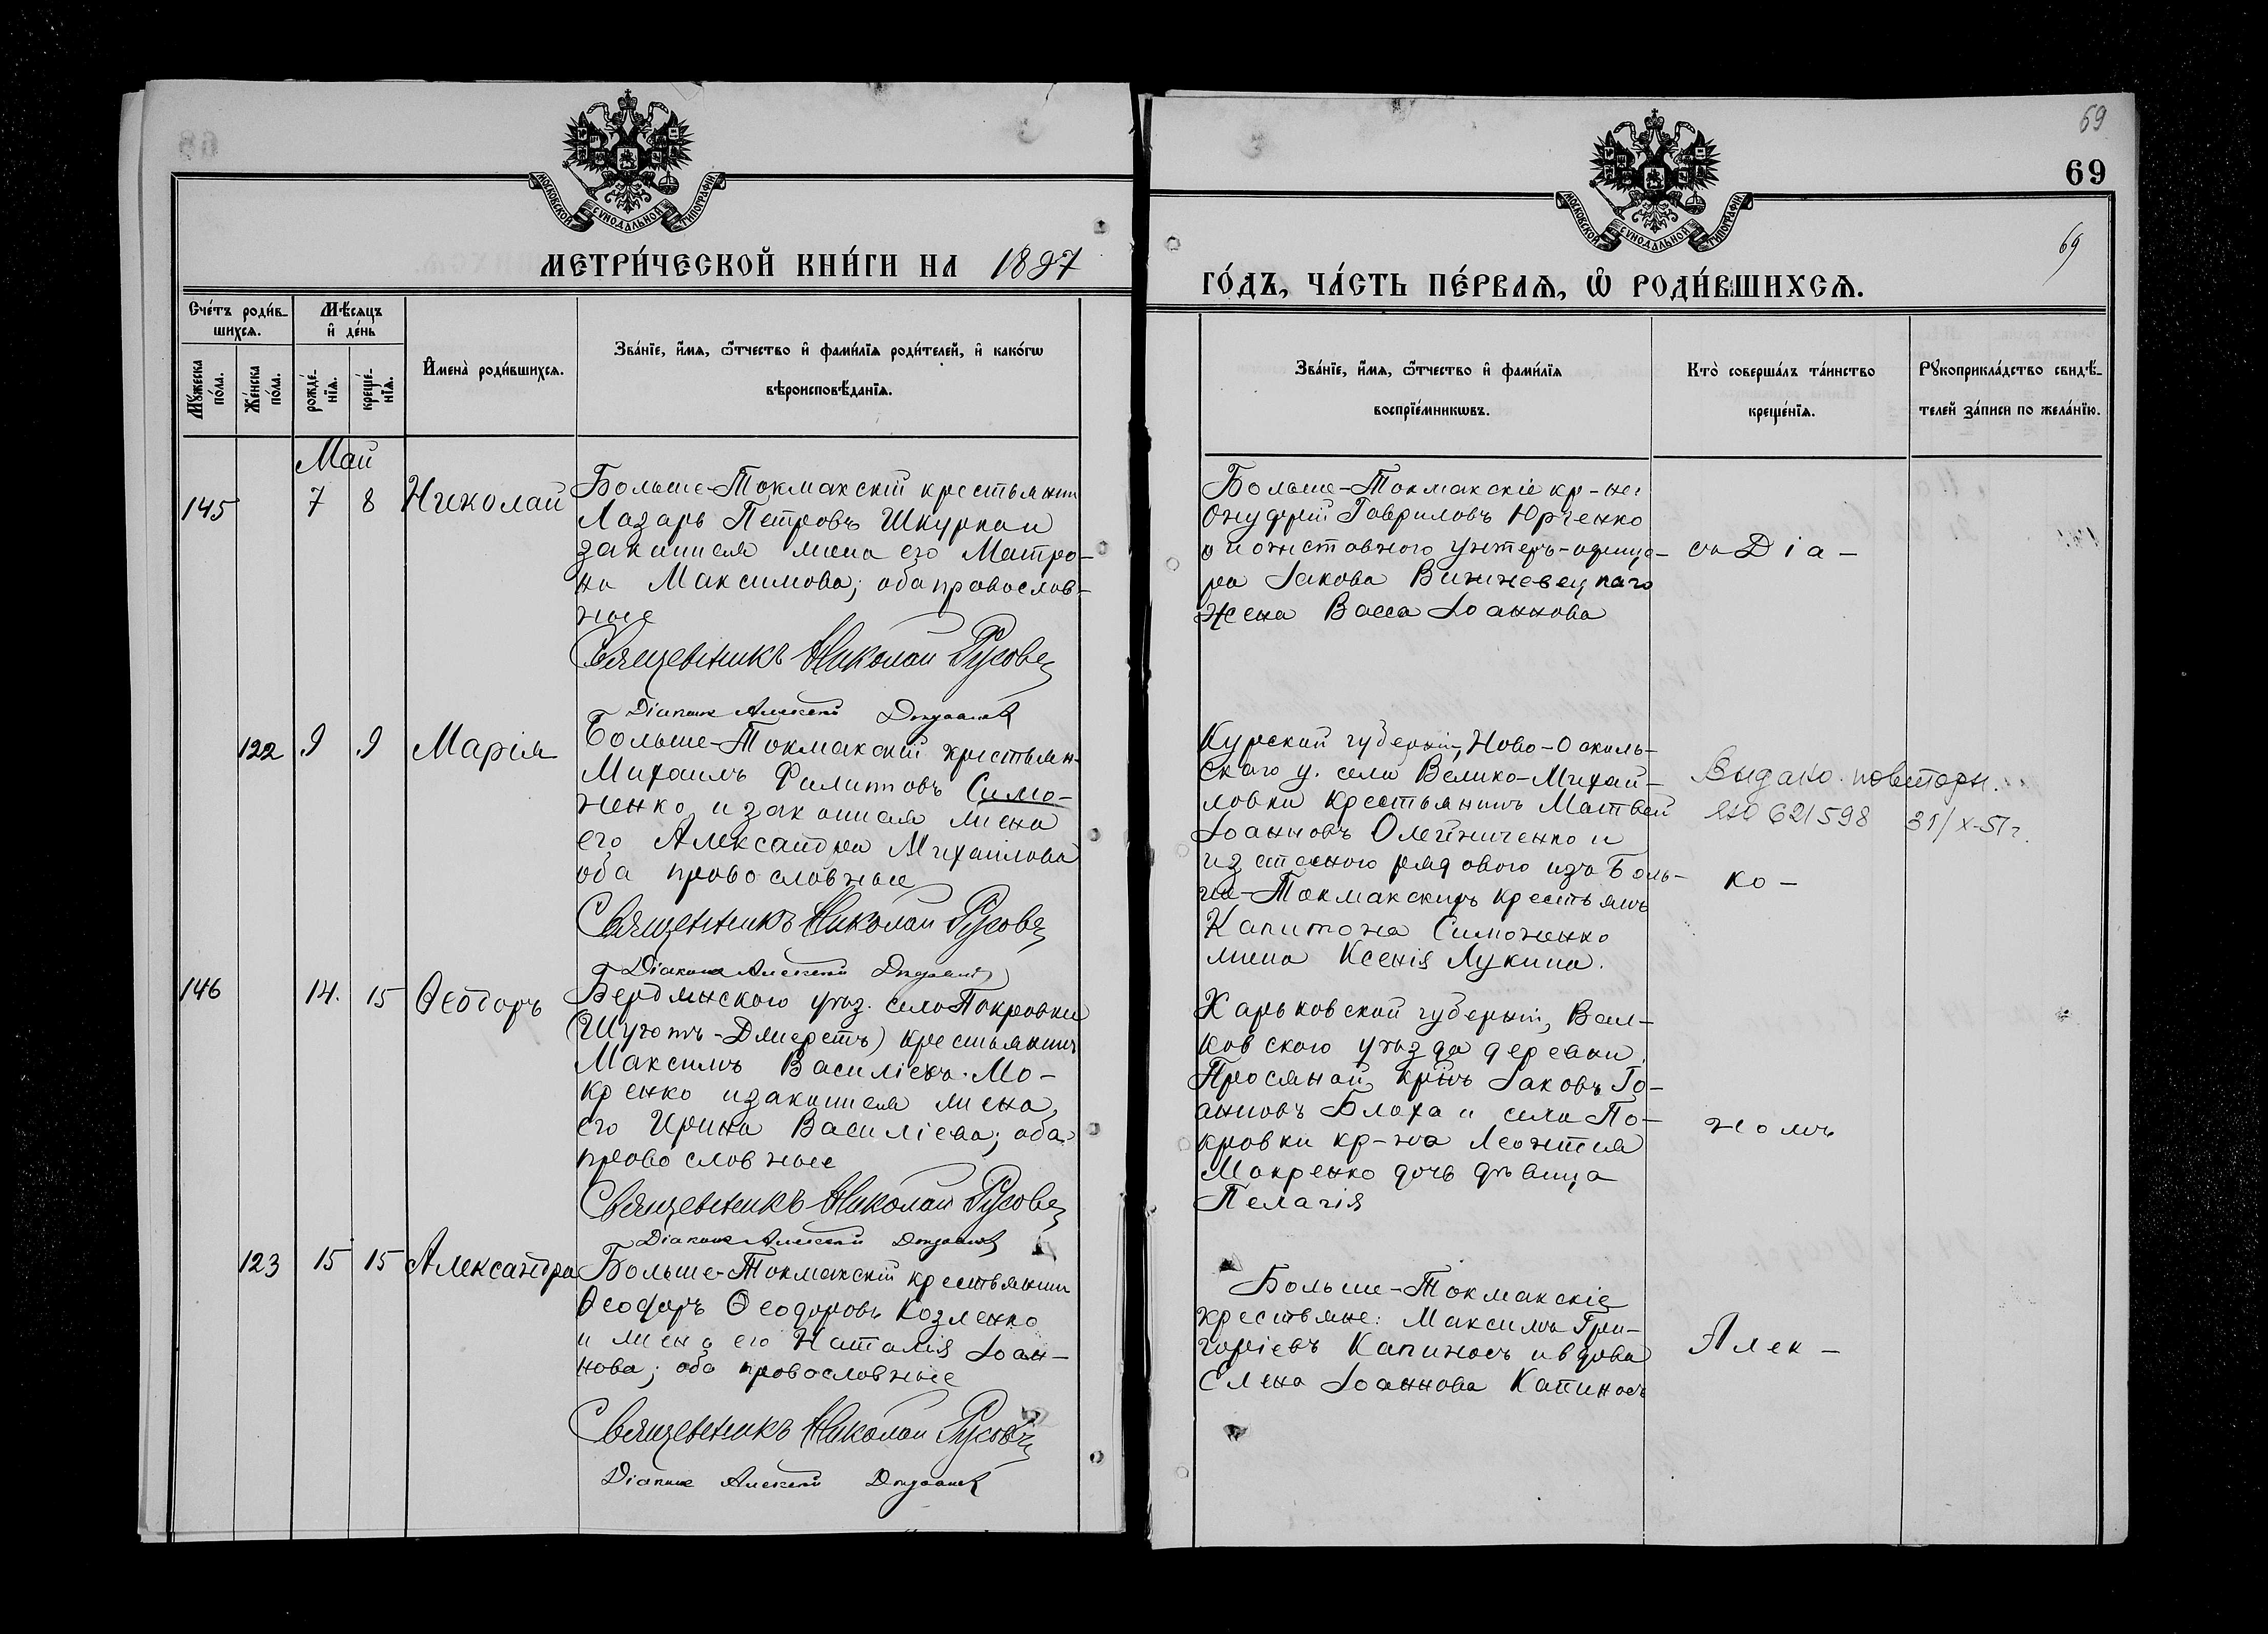 69
69
МОСКОВСКОЙ СѴНОДАЛЬНОЙ ТИПОГРАФІИ
МЕТРИ́ЧЕСКОЙ КНИ́ГИ НА 1897
Сче́тъ роди́в-
шихсѧ.
Мѣ́сяцъ
и҆ де́нь
Мꙋ́жеска
по́ла.
Же́нска
по́ла.
рожде́-
нїѧ.
креще́-
нїѧ.
И҆мена̀ роди́вшихсѧ.
Зва́нїе, и҆́мѧ, ѻ҆́тчество и҆ фами́лїѧ роди́телей, и҆ како́гѡ
вѣроисповѣ́данїѧ.
Май
145
7
8
Николай
Больше-Токмакскій крестьянин
Лазарь Петровъ Шкурка и
законная жена его Матро-
на Максимова; оба православ-
ные
Священникъ Николай Русовъ
Діаконъ Алексей
122
9
9
Марія
Больше-Токмакскій крестьян.
Михаилъ Филипповъ Симо-
ненко и законная жена
его Александра Михаилова
оба православные
Священникъ Николай Русовъ
Діаконъ Алексей
146
14.
15
Ѳеодоръ
Бердянского уѣз. села Покровки
(Шуютъ-Джеретъ) крестьянинъ
Максимъ Василіевъ Мо-
кренко и законная жена
его Ирина Василіева; оба
православные
Священникъ Николай Русовъ
Діаконъ Алексей
123
15
15
Александра
Больше-Токмакскій крестьянин
Ѳеодоръ Ѳеодоровъ Козленко
и жена его Наталія Іоан-
нова; оба православные
Священникъ Николай Русовъ
Діаконъ Алексей
69
МОСКОВСКОЙ СѴНОДАЛЬНОЙ ТИПОГРАФІИ
ГО́ДЪ, ЧА́СТЬ ПЕ́РВАѦ, Ѡ҆ РОДИ́ВШИХСѦ.
Зва́нїе, и҆́мѧ, ѻ҆́тчество и҆ фами́лїѧ
воспрїе́мникѡвъ.
Кто̀ соверша́лъ та́инство
креще́нїѧ.
Рꙋкоприкла́дство свидѣ́-
телей за́писи по жела́нїю.
Больше-Токмакскіе кр-не:
Онуфрій Гавриловъ Юрченко
и отставного унтеръ-офице-
ра Іакова Вишневецкаго
жена Васса Іоаннова
съ Діа-
Курской губерніи, Ново-Осколь-
ского у. села Велико-Михай-
ловки крестьянинъ Матвей
Іоанновъ Олейниченко и
запасного рядового изъ Боль-
ше-Токмакскихъ крестьянъ
Капитона Симоненко
жена Ксенія Лукина.
Выдано повторн.
ЯЮ 621598 31/X-51г.
ко-
Харьковской губерніи, Вал-
ковского уѣзда деревни
Просяной, кр-нъ Іаковъ Іо-
анновъ Блоха и села По-
кровки кр-на Леонтия
Мокренко дочь дѣвица
Пелагія
номъ
Больше-Токмакскіе
крестьяне: Максимъ Гри-
горіевъ Капиносъ и вдова
Елена Іоаннова Капиносъ
Алек-